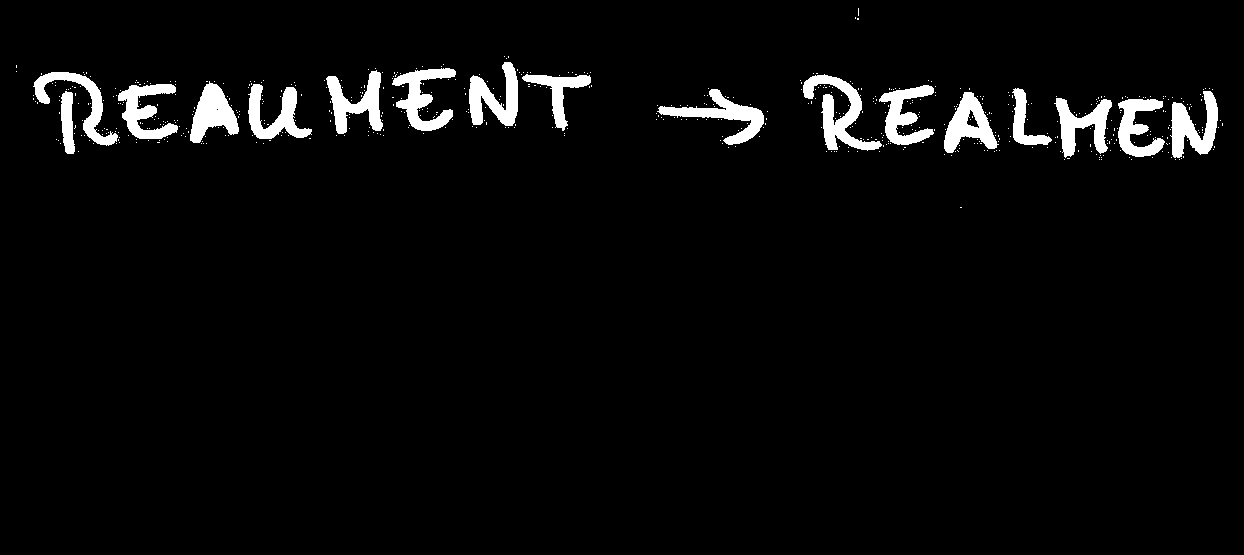 REAUMENT → REALMEN